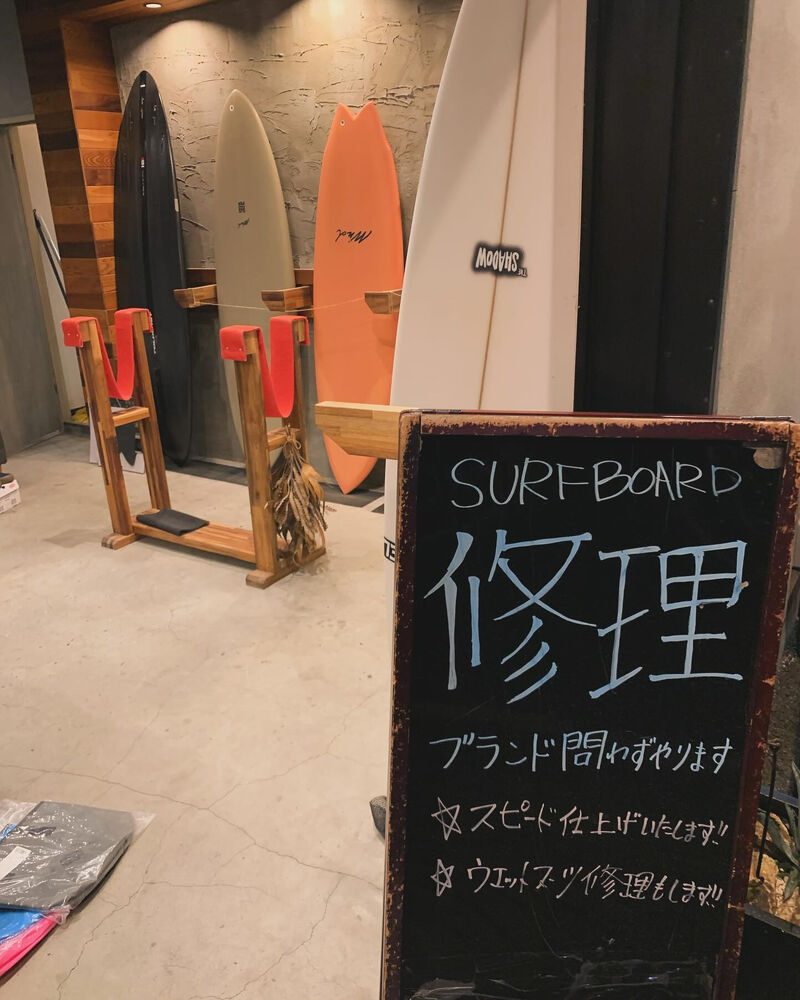 THE
SHADOW
SURFBOARD
修理
ブランド問わずやります
☆スピード仕上げいたします!!
☆ウエットスーツ修理もします!!